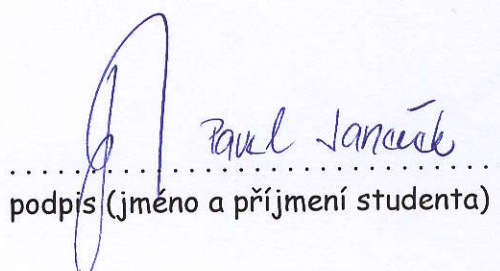 Pavel Janáček
podpis (jméno a příjmení studenta)